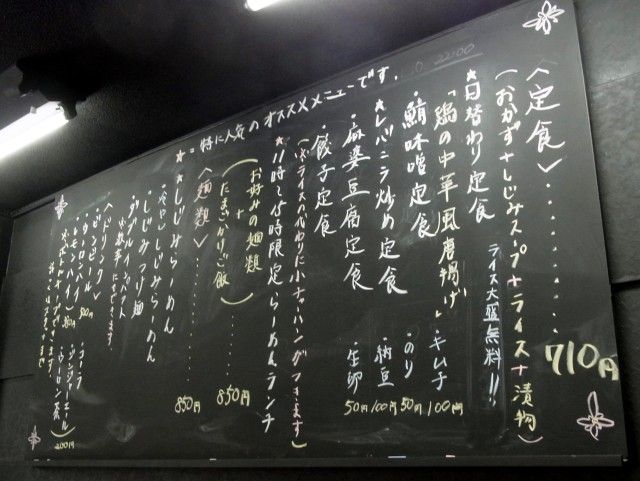 ★=特に人気のオススメメニューです。
〈定食〉‥‥‥‥710円
(おかず+しじみスープ+ライス+漬物)
ライス大盛無料!!
★日替わり定食
「鶏の中華風唐揚げ」
・鯖味噌定食
★レバニラ炒め定食
・麻婆豆腐定食
・餃子定食
・キムチ 100円
・のり 50円
・納豆 100円
・生卵 50円
★11時〜15時限定らーめんランチ
(※ライスの代わりに小チャーハンがつきます)
お好みの麺類
+
たまごかけご飯
850円
〈麺類〉
★しじみらーめん 850円
・冷やししじみらーめん
・しじみつけ麺
・ダブルインパクト
〈ドリンク〉
・ビンビール 500円
・レモンハイ
・コーラ
・ジンジャーエール
・ウーロン茶
200円